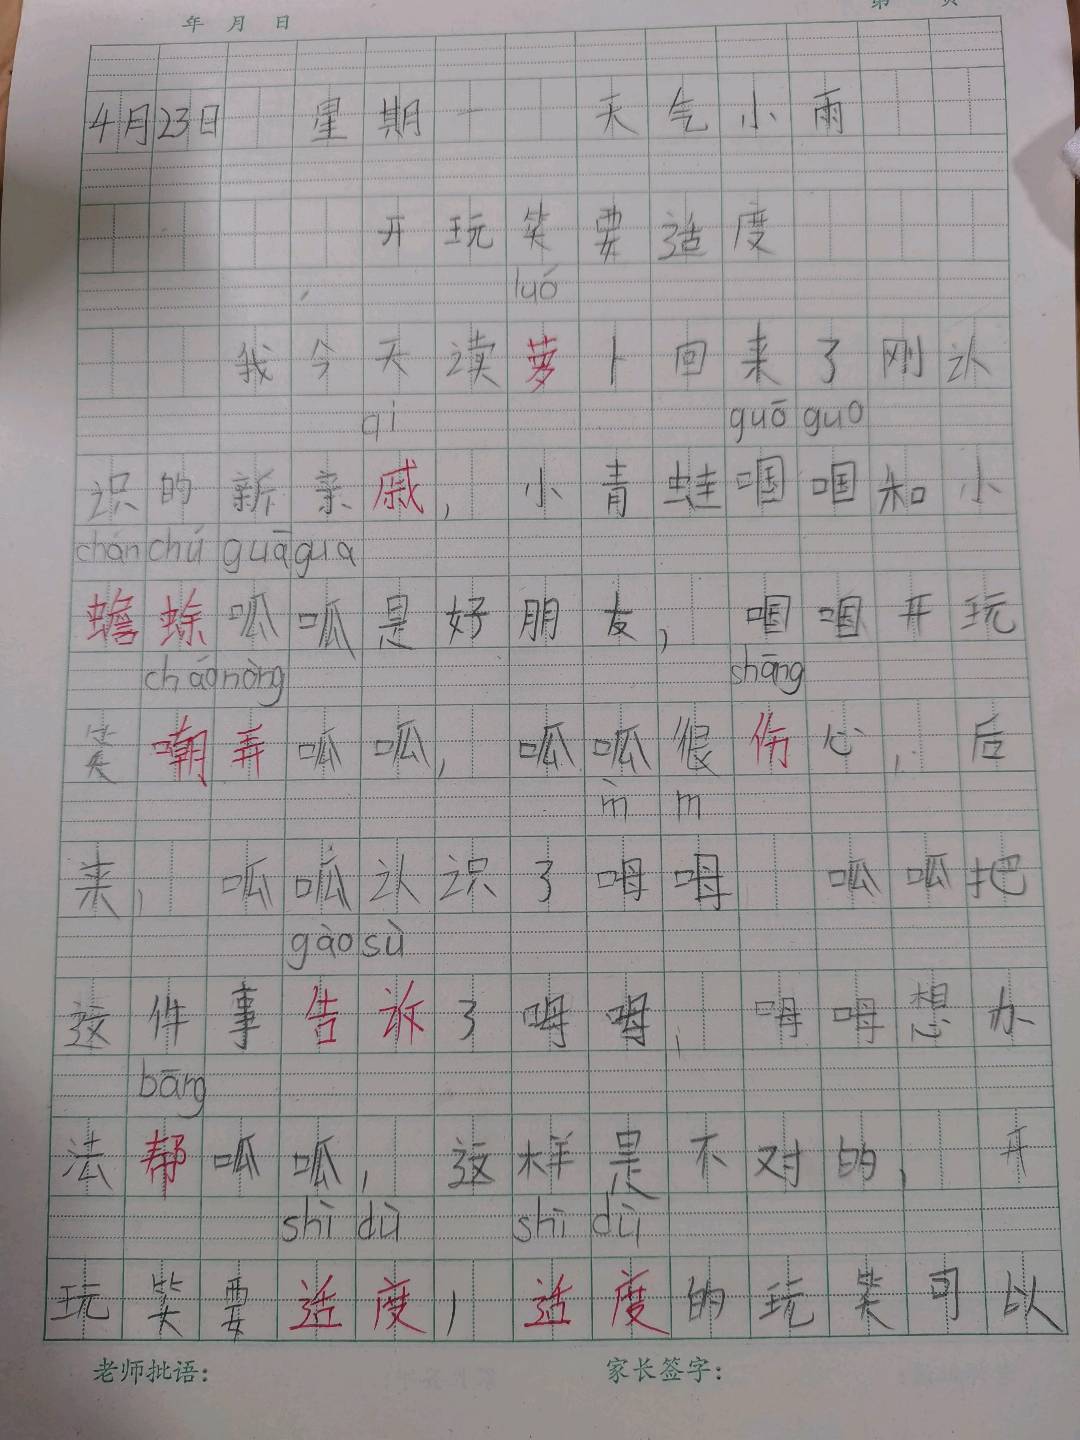 年 月 日 第 页
4月23日 星期一 天气小雨
开玩笑要适度
luó
我今天读萝卜回来了刚认
qi guō guo
识的新亲戚，小青蛙啯啯和小
chán chú guā gua
蟾蜍呱呱是好朋友，啯啯开玩
cháo nòng shāng
笑嘲弄呱呱，呱呱很伤心，后
m̀ m
来，呱呱认识了呣呣 呱呱把
gào sù
这件事告诉了呣呣，呣呣想办
bāng
法帮呱呱，这样是不对的，开
shì dù shì dù
玩笑要适度，适度的玩笑可以
老师批语： 家长签字：